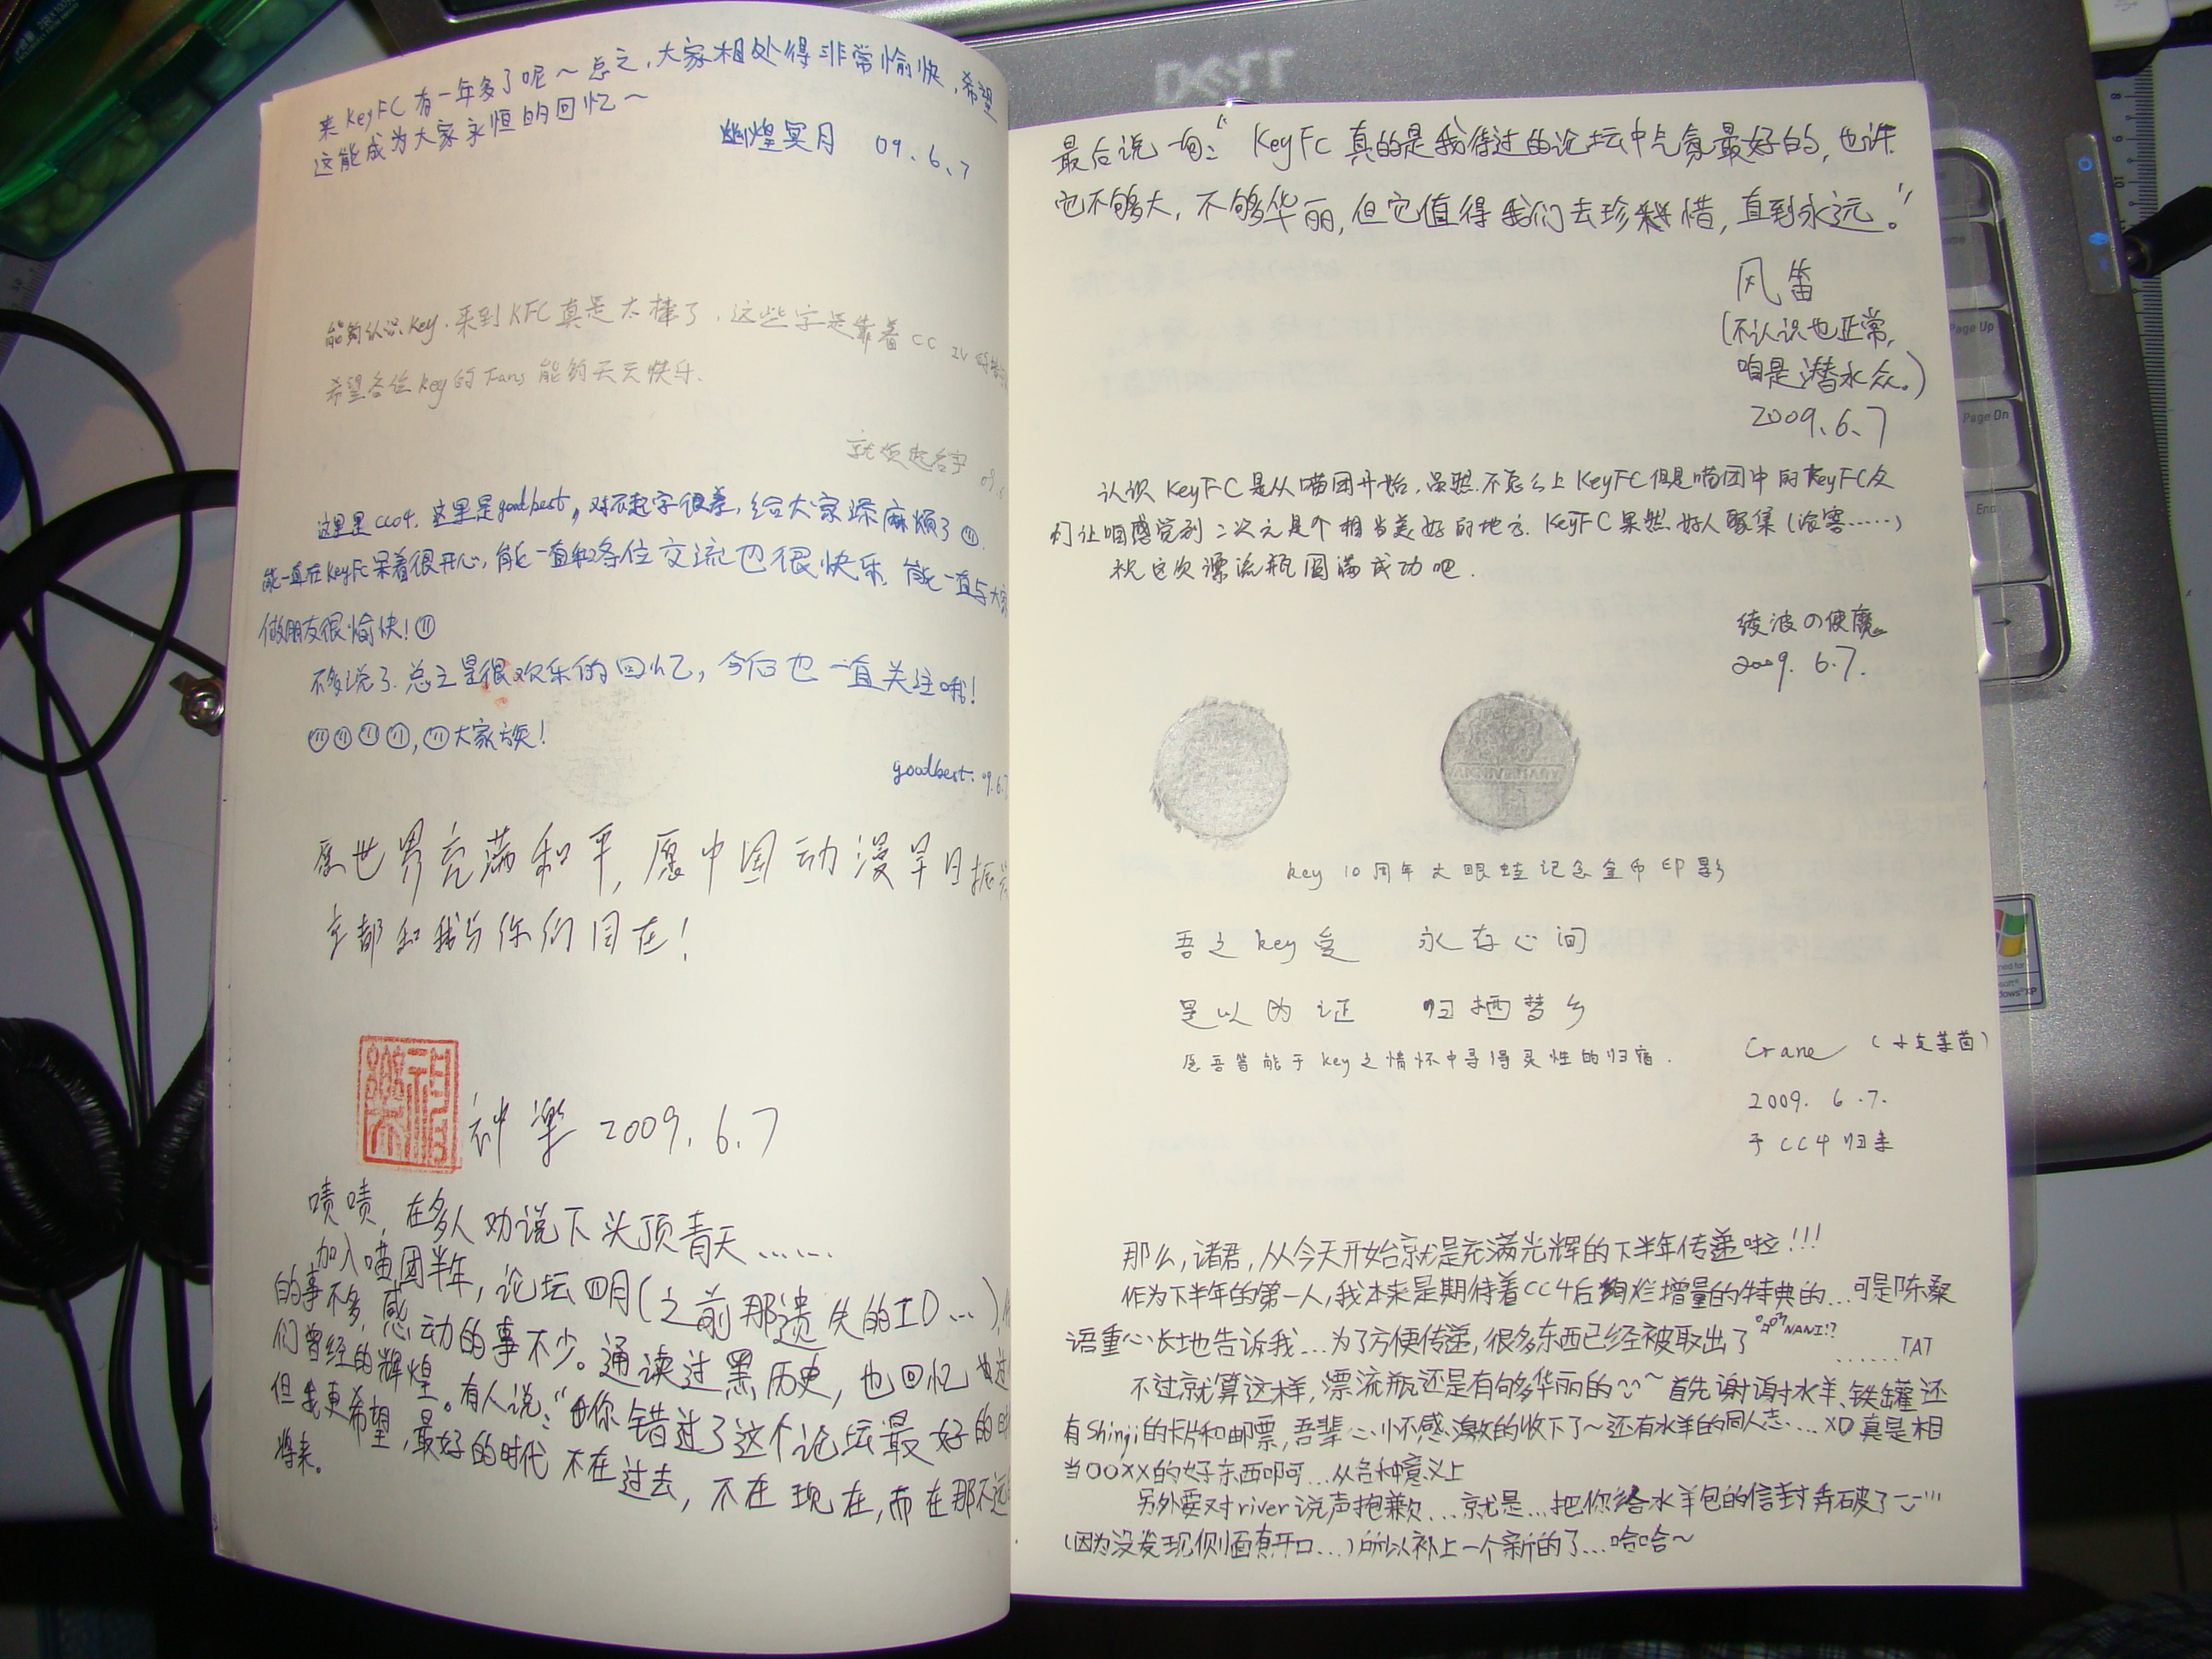 来KeyFC有一年多了呢～总之，大家相处得非常愉快，希望
这能成为大家永恒的回忆～
幽煌冥月 09.6.7
能够认识Key.来到KFC真是太棒了，这些字是靠着CC
希望各位Key的Fans能够天天快乐.
就烦起名字
这里是cc04.这里是goodbest，对不起字很差，给大家添麻烦了
能一直在KeyFC呆着很开心，能一直和各位交流也很快乐，能一直与大家
做朋友很愉快！
不多说了.总之是很欢乐的回忆，今后也一直关注哦！
大家族！
goodbest. 09.6.7
愿世界充满和平，愿中国动漫早日振
京都和我与你们同在！
神楽
神楽 2009.6.7
啧啧，在多人劝说下头顶青天……
加入喵团半年，论坛四月(之前那遗失的ID…)，
的事不多，感动的事不少。通读过黑历史，也回忆过
们曾经的辉煌。有人说：“你错过了这个论坛最好的时
但我更希望，最好的时代不在过去，不在现在，而在那不远
将来。
DELL
最后说一句：“KeyFC真的是我待过的论坛中气氛最好的，也许
它不够大，不够华丽，但它值得我们去珍惜，直到永远。”
风笛
(不认识也正常，
咱是潜水众。)
2009.6.7
认识KeyFC是从喵团开始，虽然不怎么上KeyFC但是喵团中的KeyFC众
们让咱感觉到二次元是个相当美好的地方.KeyFC果然好人聚集(浓雾……)
祝这次漂流瓶圆满成功吧.
绫波の使魔
2009.6.7.
key 10周年大眼蛙记念金币印影
吾之key爱 永存心间
是以为证 归栖梦乡
愿吾等能于key之情怀中寻得灵性的归宿.
Crane (小克莱茵)
2009.6.7.
于CC4归来
那么，诸君，从今天开始就是充满光辉的下半年传递啦!!!
作为下半年的第一人，我本来是期待着CC4后绚烂增量的特典的…可是陈桑
语重心长地告诉我…为了方便传递，很多东西已经被取出了 NANI!? ……TAT
不过就算这样，漂流瓶还是有够多华丽的～首先谢谢水羊、铁罐还
有Shinji的卡片和邮票，吾辈心怀感激的收下了～还有水羊的同人志…XD真是相
当OOXX的好东西啊呵…从各种意义上
另外要对river说声抱歉…就是…把你给水羊包的信封弄破了
(因为没发现侧面有开口…)所以补上一个新的了…哈哈～
Page Up
Page Dn
End
Windows XP